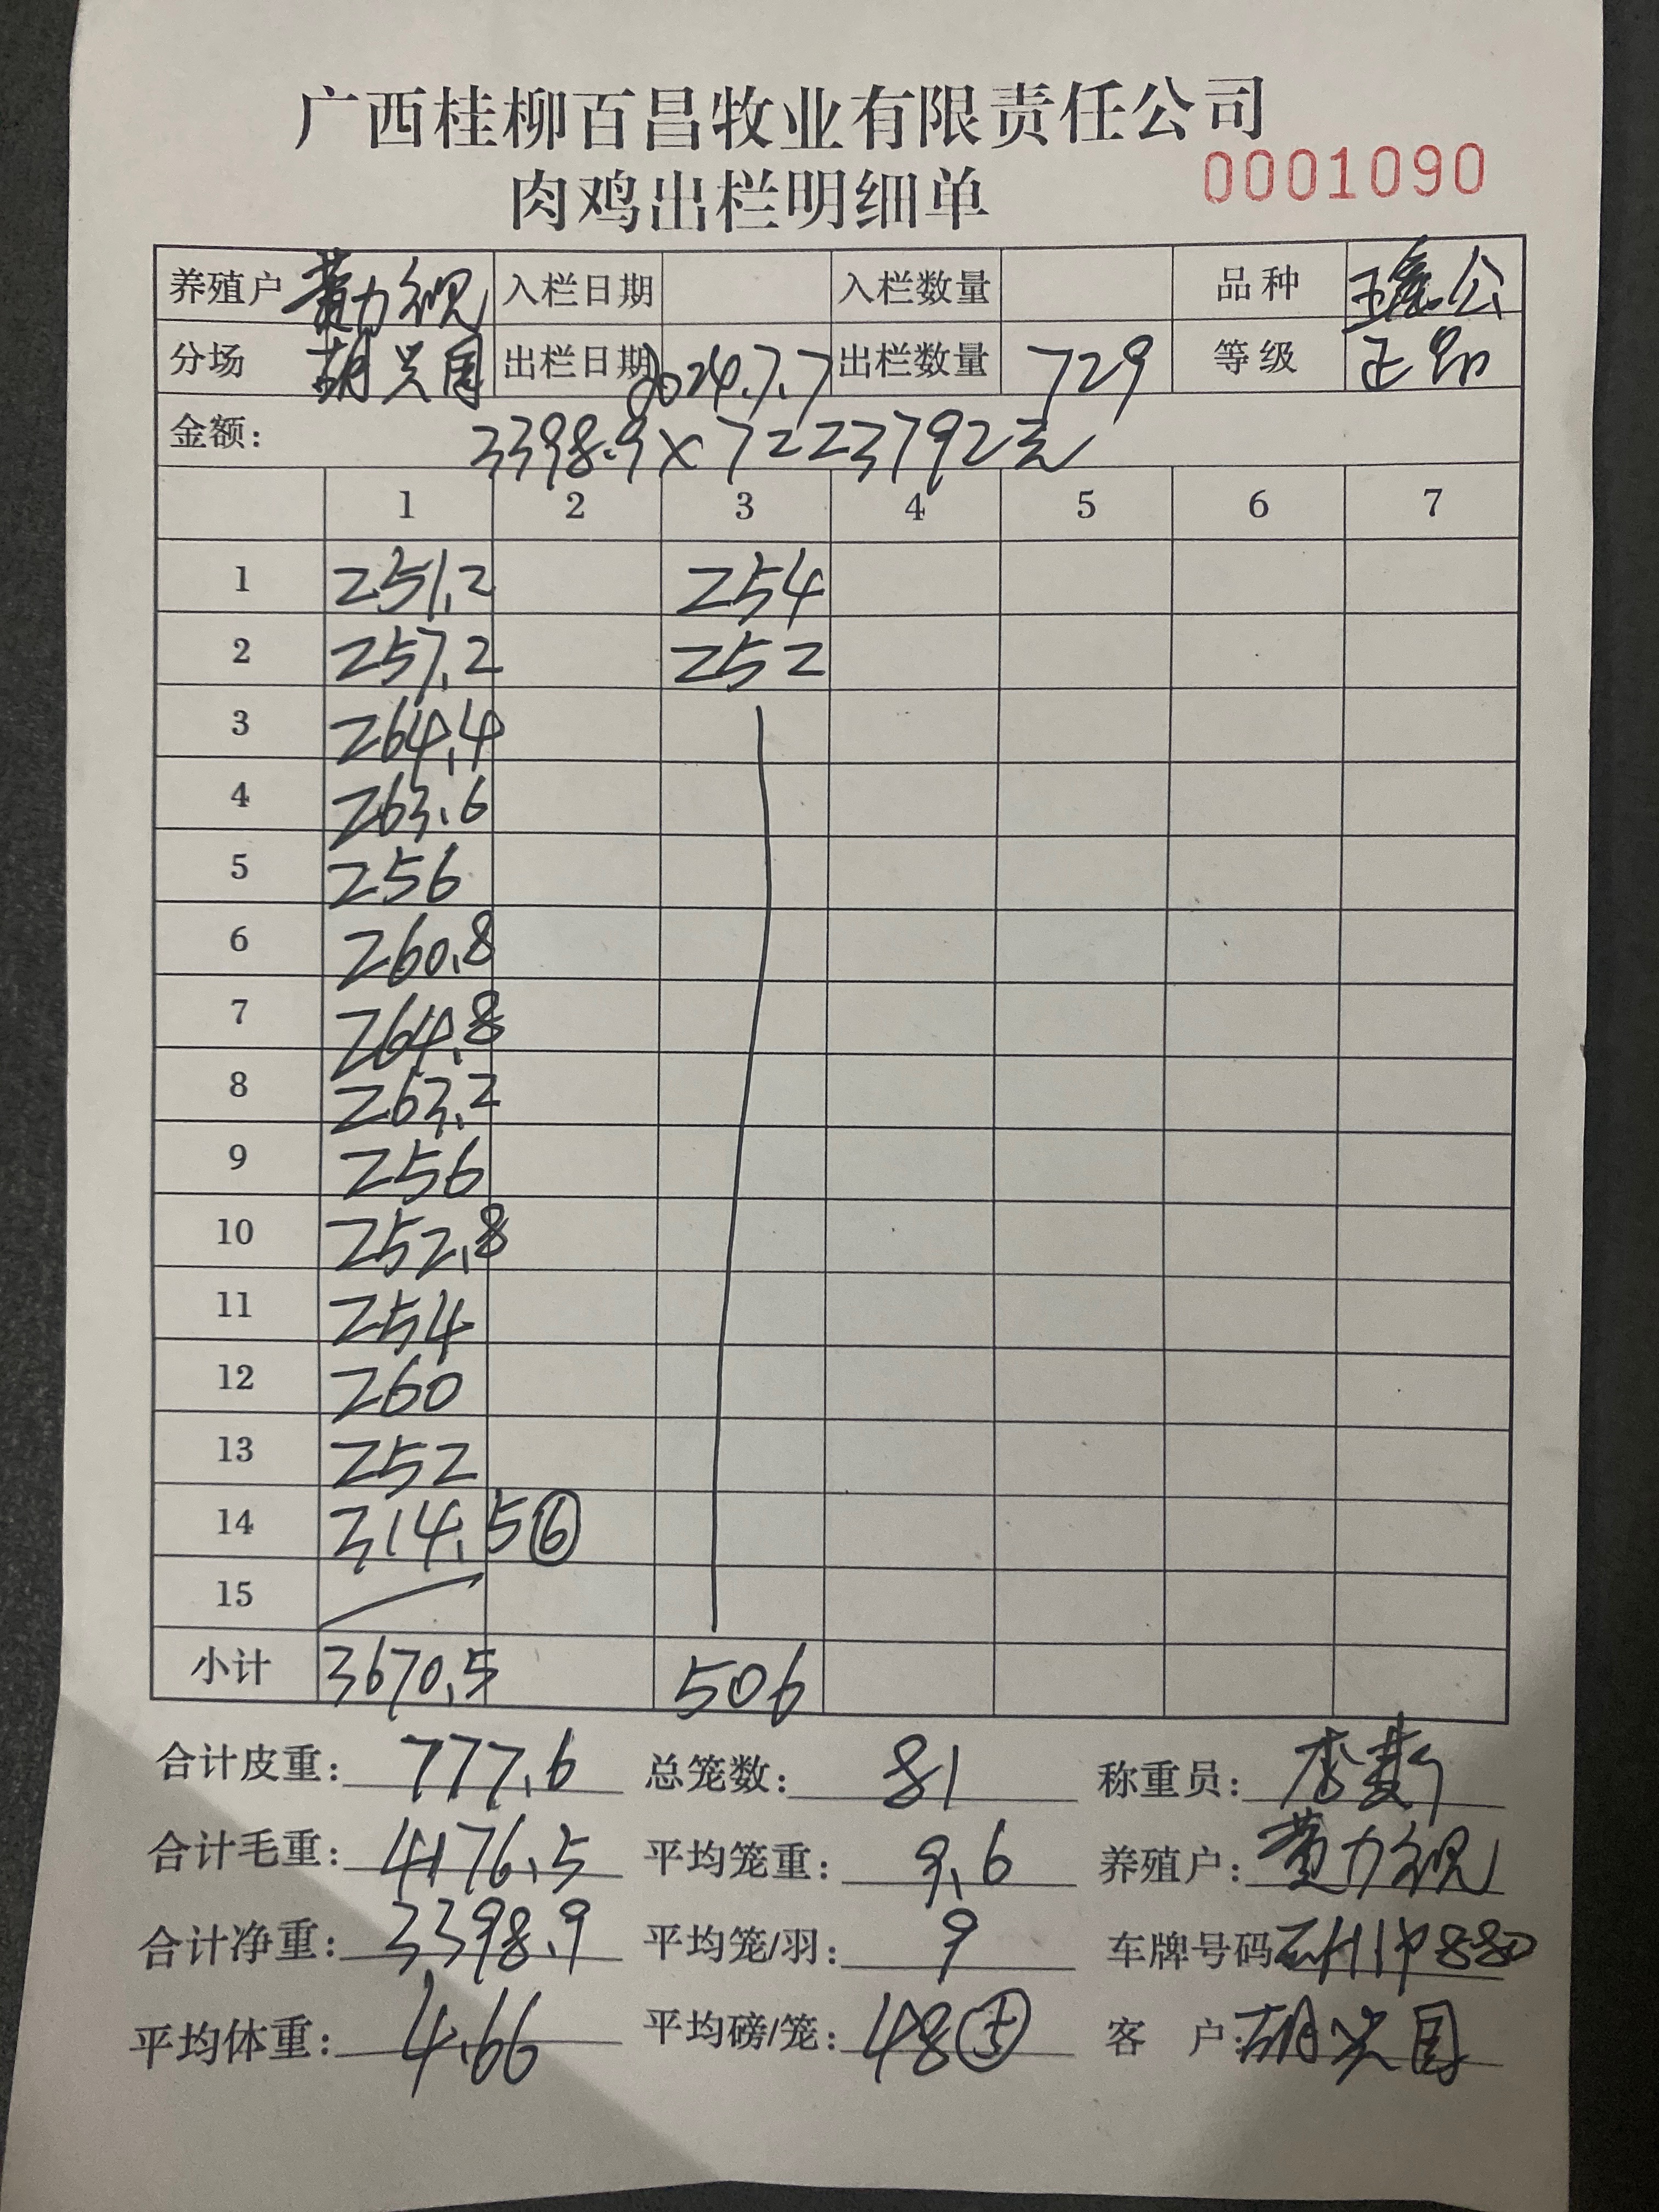 广西桂柳百昌牧业有限责任公司
肉鸡出栏明细单 0001090
养殖户 黄力 入栏日期 入栏数量 品种 公
分场 胡兴国 出栏日期 2024.7.7 出栏数量 729 等级 正
金额: 3398.9×7=23792元
1 2 3 4 5 6 7
1 251.2 254
2 257.2 252
3 264.4
4 263.6
5 256
6 260.8
7 264.8
8 263.2
9 256
10 252.8
11 254
12 260
13 252
14 314.5 ⑥
15
小计 3670.5 506
合计皮重: 777.6 总笼数: 81 称重员: 李
合计毛重: 4176.5 平均笼重: 9.6 养殖户: 黄力
合计净重: 3398.9 平均笼/羽: 9 车牌号码 880
平均体重: 4.66 平均磅/笼: 48⑤ 客 户: 胡兴国